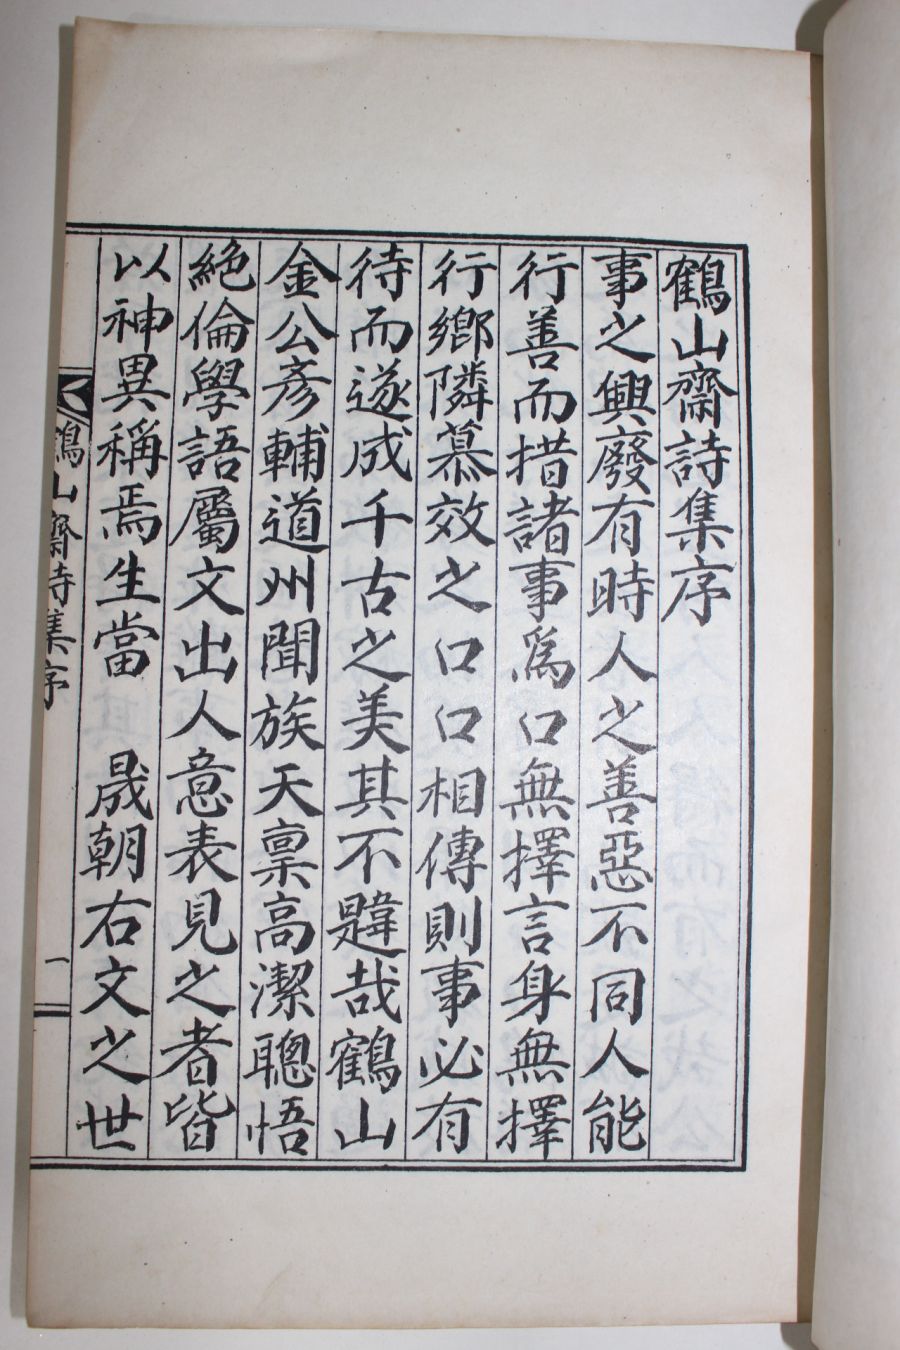 鶴山齋詩集序
事之興廢有時人之善惡不同人能
行善而措諸事爲口無擇言身無擇
行鄕隣慕效之口口相傳則事必有
待而遂成千古之美其不韙哉鶴山
金公彥輔道州聞族天稟高潔聰悟
絕倫學語屬文出人意表見之者皆
以神異稱焉生當　晟朝右文之世
鶴山齋詩集序
一